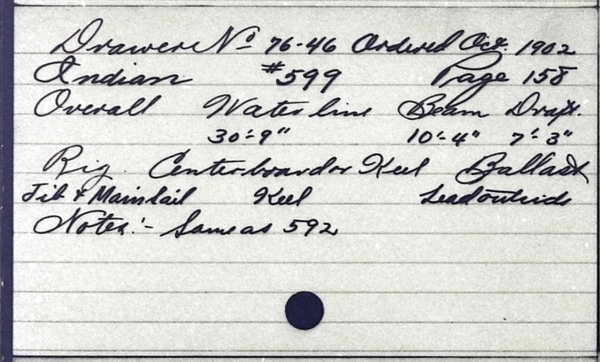 Drawer No 76-46 Ordered Oct. 1902
Indian #599 Page 158
Overall Waterline Beam Draft.
30'-9" 10'-4" 7'-3"
Rig. Centerboard or Keel Ballast
Jib & Mainsail Keel Lead outside
Notes:- Same as 592